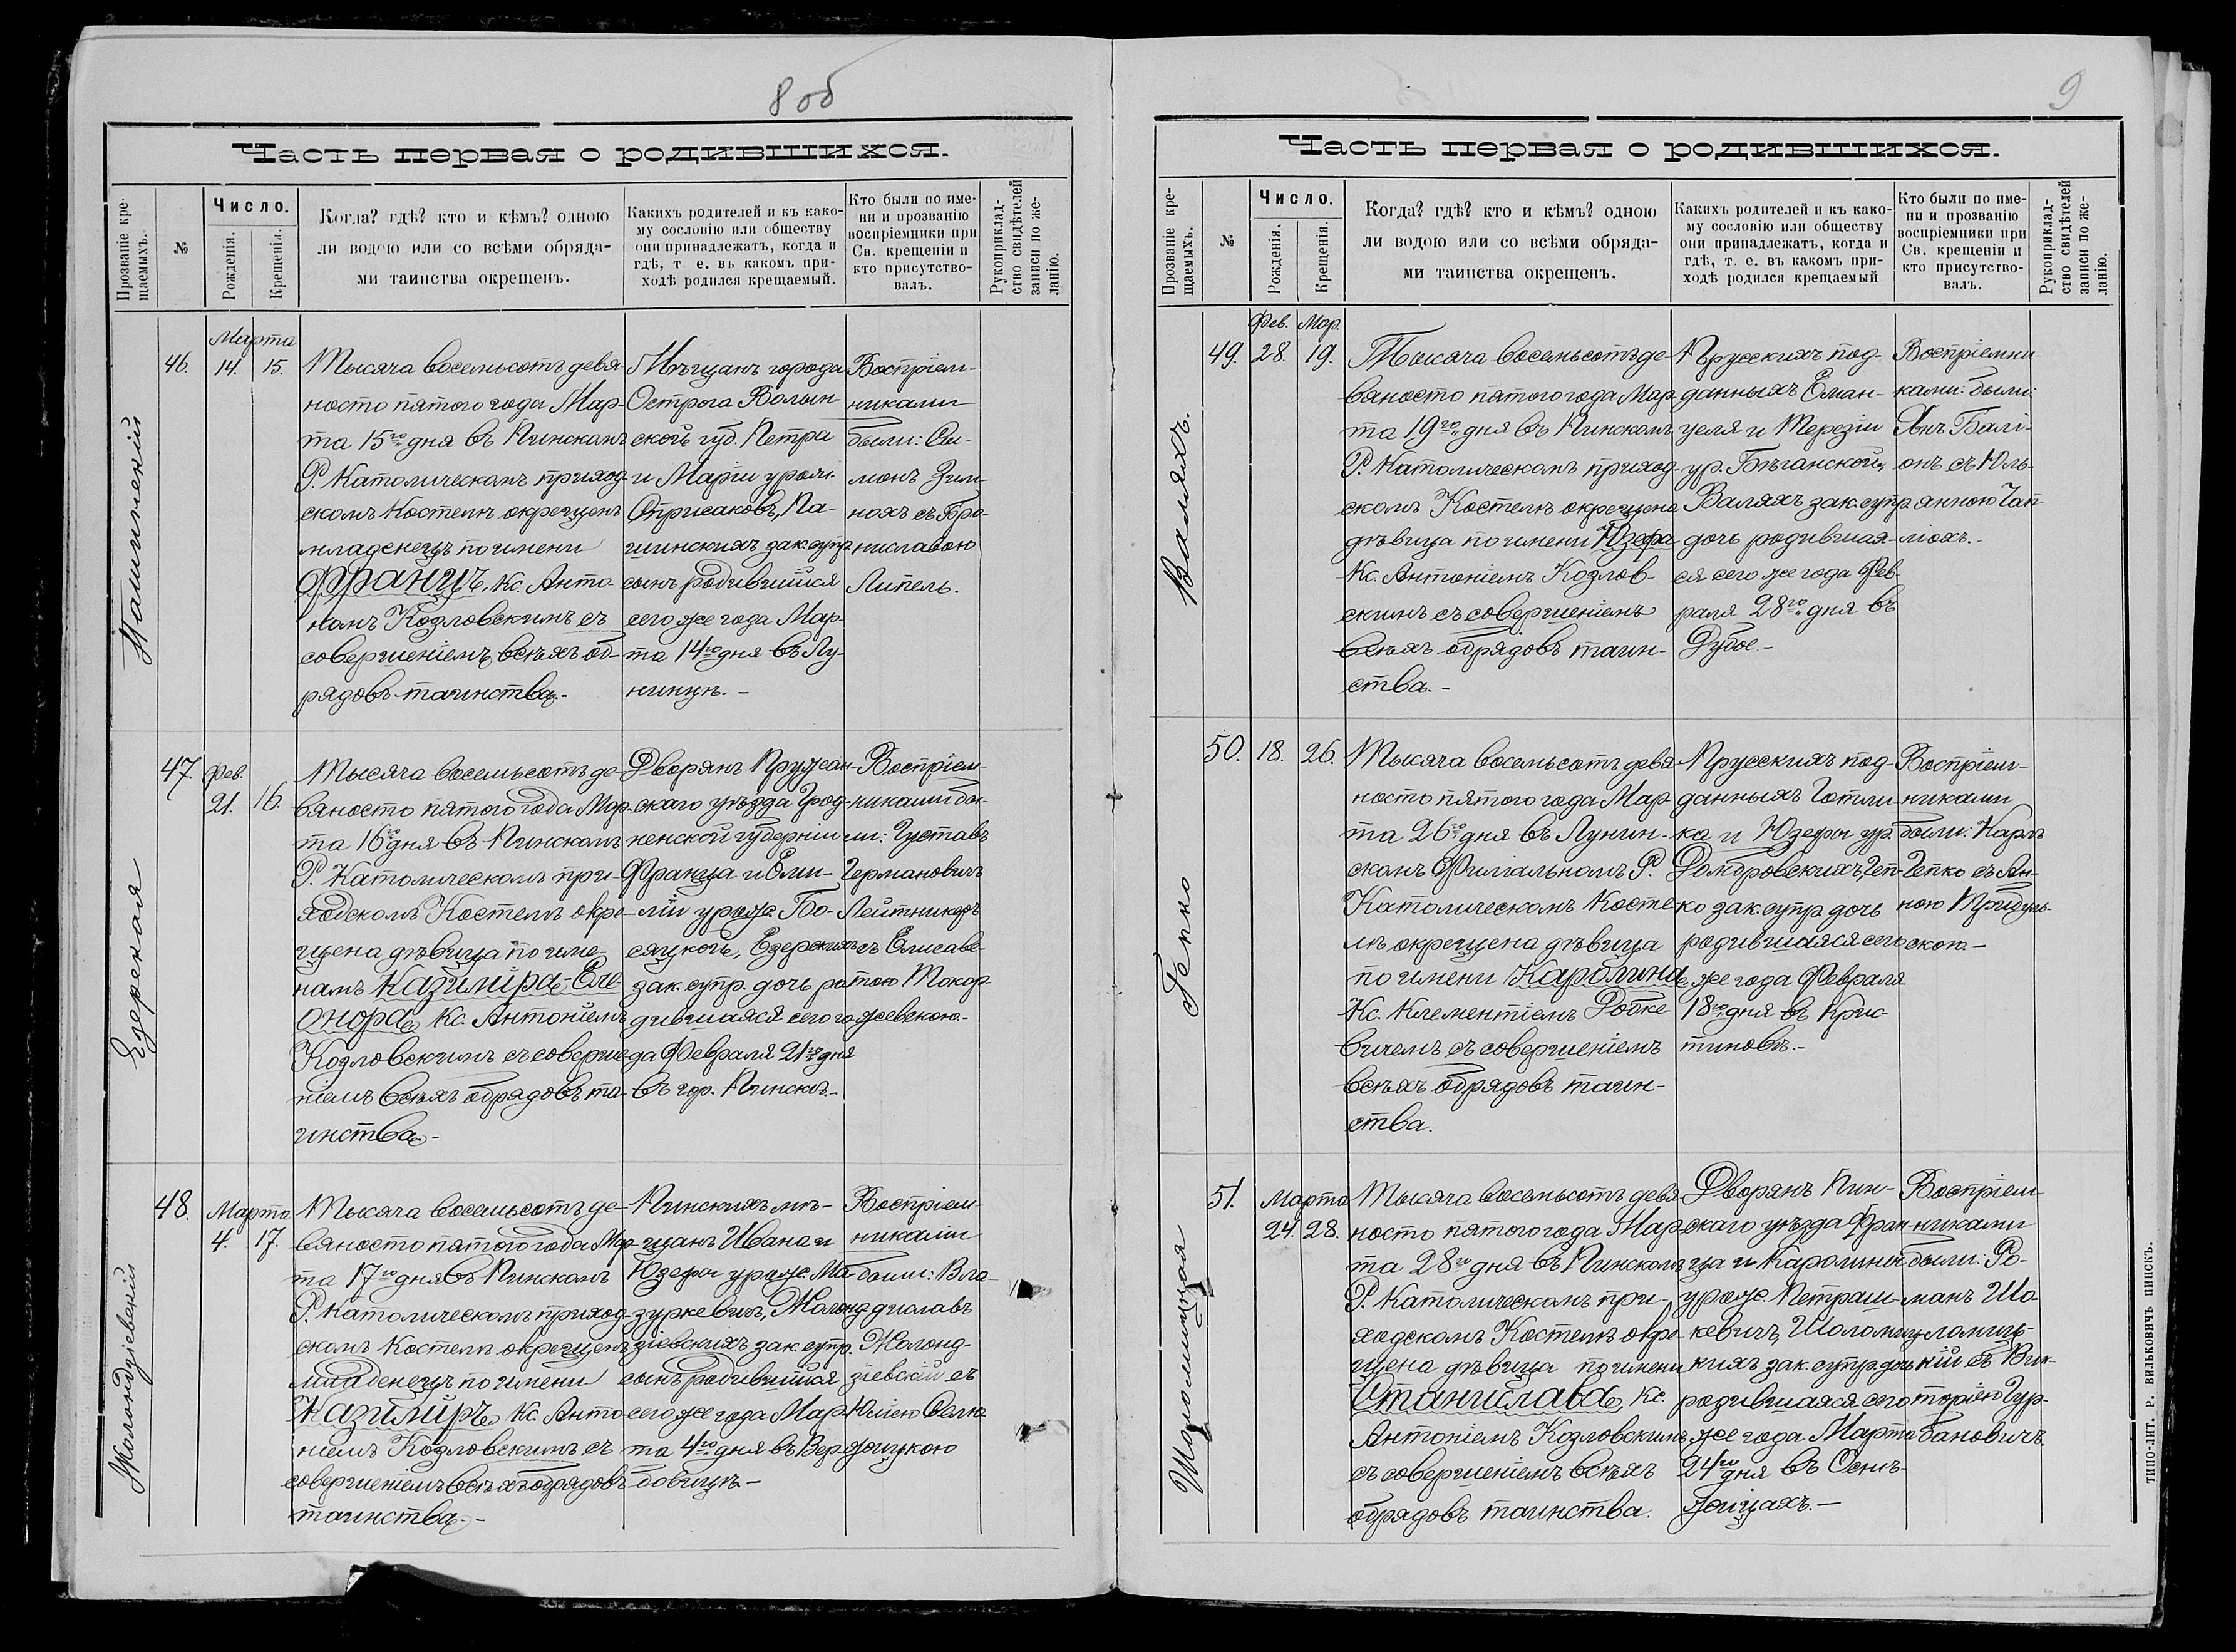 8 об
Часть первая о родившихся.
Прозваніе кре-
щаемыхъ.
№
Число.
Рожденія.
Крещенія.
Когда? гдѣ? кто и кѣмъ? одною
ли водою или со всѣми обряда-
ми таинства окрещенъ.
Какихъ родителей и къ како-
му сословію или обществу
они принадлежатъ, когда и
гдѣ, т. е. въ какомъ при-
ходѣ родился крещаемый.
Кто были по име-
ни и прозванію
воспріемники при
Св. крещеніи и
кто присутство-
валъ.
Рукоприклад-
ство свидѣтелей
записи по же-
ланію.
46.
Марта
14. 15.
Тысяча восемьсотъ девя-
носто пятого года Мар-
та 15го дня въ Пинскомъ
Р. Католическомъ приход-
скомъ Костелѣ окрещенъ
младенецъ по имени
Францъ, Кс. Анто-
Козловскимъ съ
совершеніемъ всѣхъ об-
рядовъ таинства.-
Мѣщанъ города
Острога Волын-
ской губ. Петра
и Маріи урож.
Па-
шинскихъ зак. супр.
сынъ родившійся
сего же года Мар-
та 14го дня въ Лу-
нинцѣ.-
Воспріем-
никами
были: Си-
монъ Зим-
нохъ съ Бро-
ниславою
Липель.
Езерская
47.
Фев.
21. 16.
Тысяча восемьсотъ де-
вяносто пятого года Мар-
та 16го дня въ Пинскомъ
Р. Католическомъ при-
ходскомъ Костелѣ окре-
щена дѣвица по име-
намъ Казиміра-Еле-
онора, Кс. Антоніемъ
Козловскимъ съ соверше-
ніемъ всѣхъ обрядовъ та-
инства.-
Дворянъ Пружан-
скаго уѣзда Грод-
ненской губерніи
Франца и Еми-
ліи урожс. Бо-
сяцкой, Езерскихъ
зак. супр. дочь ро-
дившаяся сего го-
да Февраля 21го дня
въ гор. Пинскѣ.-
Воспріем-
никами бы-
ли: Густавъ
Германовичъ
Лейтникеръ
съ Елисаве-
тою Токар-
жевскою.-
Жолондзіевскій
48.
Марта
4. 17.
Тысяча восемьсотъ де-
вяносто пятого года Мар-
та 17го дня въ Пинскомъ
Р. Католическомъ приход-
скомъ Костелѣ окрещенъ
младенецъ по имени
Казиміръ, Кс. Анто-
ніемъ Козловскимъ съ
совершеніемъ всѣхъ обрядовъ
таинства.-
Пинскихъ мѣ-
щанъ Ивана и
Юзефы урожс. Ма-
зуркевичъ, Жолонд-
зіевскихъ зак. супр.
сынъ родившійся
сего же года Мар-
та 4го дня въ Вер-
бовицѣ.-
Воспріем-
никами
были: Вла-
диславъ
Жолонд-
зіевскій съ
Юліею
9
Часть первая о родившихся.
Прозваніе кре-
щаемыхъ.
№
Число.
Рожденія.
Крещенія.
Когда? гдѣ? кто и кѣмъ? одною
ли водою или со всѣми обряда-
ми таинства окрещенъ.
Какихъ родителей и къ како-
му сословію или обществу
они принадлежатъ, когда и
гдѣ, т. е. въ какомъ при-
ходѣ родился крещаемый
Кто были по име-
ни и прозванію
воспріемники при
Св. крещеніи и
кто присутство-
валъ.
Рукоприклад-
ство свидѣтелей
записи по же-
ланію.
Валяхъ.
49.
Фев. Мар.
28. 19.
Тысяча восемьсотъ де-
вяносто пятого года Мар-
та 19го дня въ Пинскомъ
Р. Католическомъ приход-
скомъ Костелѣ окрещена
дѣвица по имени Юзефа
Кс. Антоніемъ Козлов-
скимъ съ совершеніемъ
всѣхъ обрядовъ таин-
ства.-
Прусскихъ под-
данныхъ Еман-
уеля и Терезіи
ур. Бѣганской,
Валяхъ зак. супр.
дочь родившая-
ся сего же года Фев-
раля 28го дня въ
Дубое.-
Воспріемни-
ками: были:
Янъ Балі-
онъ съ Юль-
янною Чап-
ліохъ.-
Гепко
50.
18. 26.
Тысяча восемьсотъ девя-
носто пятого года Мар-
та 26го дня въ Лунин-
скомъ Филіальномъ Р.
Католическомъ Косте-
лѣ окрещена дѣвица
по имени Каролина,
Кс. Клементіемъ Робке-
вичемъ съ совершеніемъ
всѣхъ обрядовъ таин-
ства.
Прусскихъ под-
данныхъ Готли-
ка и Юзефы ур.
Домбровскихъ, Геп-
ко зак. супр. дочь
родившаяся сего
же года Февраля
18го дня въ Крис-
тиновѣ.-
Воспріем-
никами
были: Карлъ
Гепко съ Ан-
ною
скою.-
Шоломицкая
51.
Марта
24. 28.
Тысяча восемьсотъ девя-
носто пятого года Мар-
та 28го дня въ Пинскомъ
Р. Католическомъ при-
ходскомъ Костелѣ окре-
щена дѣвица по имени
Станислава, Кс.
Антоніемъ Козловскимъ
съ совершеніемъ всѣхъ
обрядовъ таинства.
Дворянъ Пин-
скаго уѣзда Фран-
ца и Каролины
урожс. Петраш-
кевичъ, Шоломиц-
кихъ зак. супр. дочь
родившаяся сего
же года Марта
24го дня въ Оснѣ-
жицахъ.-
Воспріем-
никами
были: Ро-
манъ Шо-
ломиц-
кій съ Вик-
торіею Гур-
бановичъ
ТИПО-ЛИТ. Р. ВИЛЬКОВИЧЪ ПИНСКЪ.